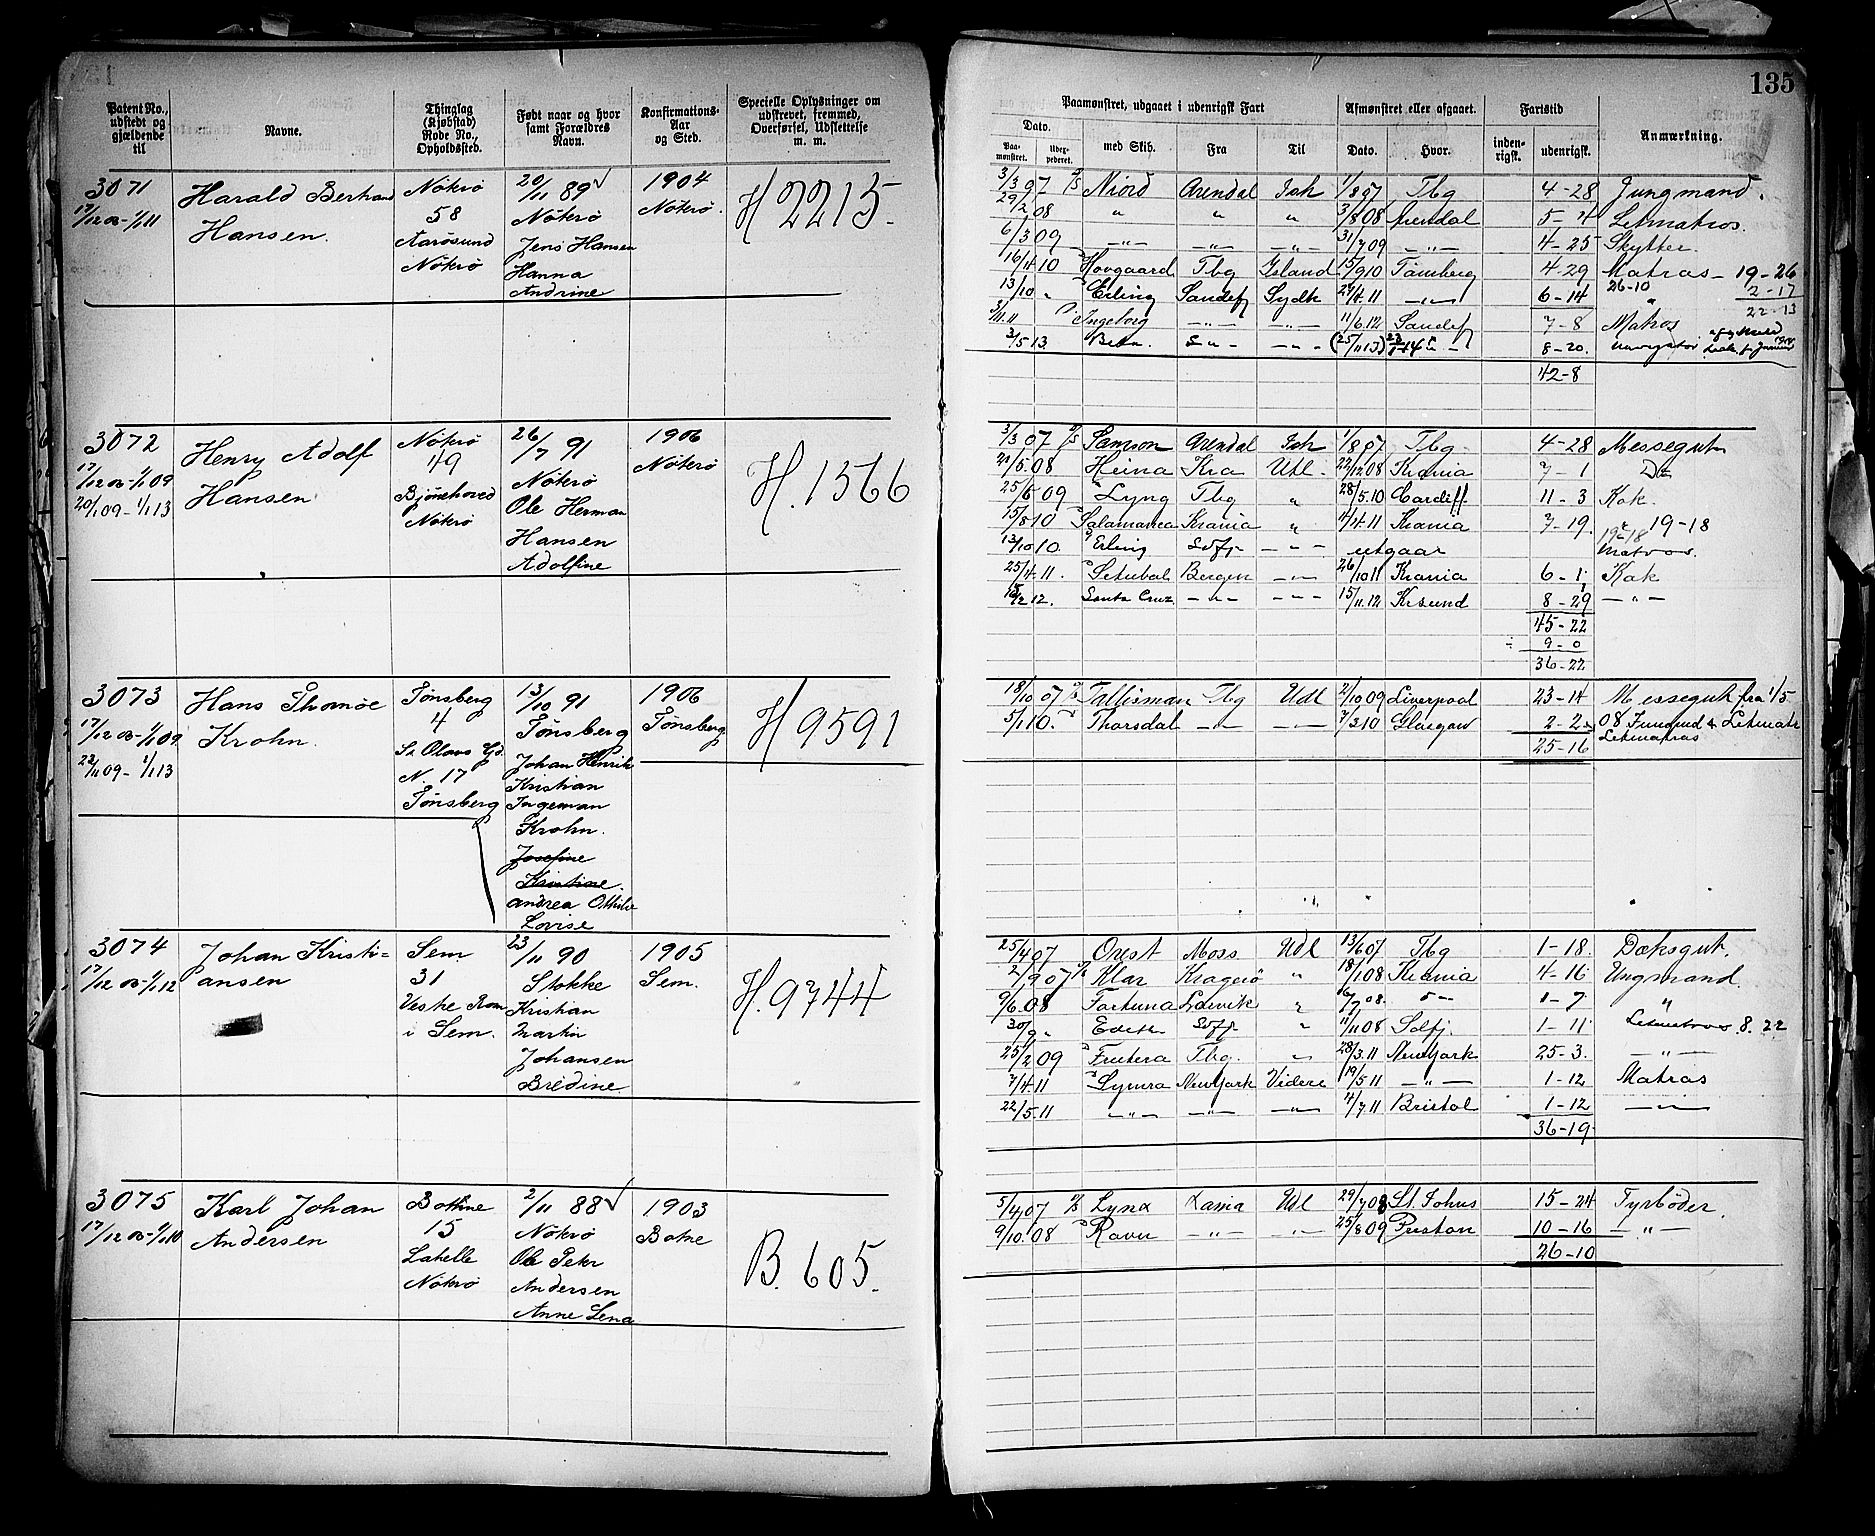 135
Patent No., udstedt og gjældende til
Navne.
Thinglag (Kjøbstad) Rode No., Opholdssted.
Født naar og hvor samt Forældres Navn.
Konfirmations-Aar og Sted.
Specielle Oplysninger om udskrevet, fremmed, Overførsel, Udslettelse m. m.
Paamønstret, udgaaet i udenrigsk Fart
Dato.
Paamønstret.
med Skib.
Fra
Til
Afmønstret eller afgaaet.
Dato.
Hvor.
Fartstid
indenrigsk.
udenrigsk.
Anmærkning.
3071
17/12 06-1/1 11
Harald Bertrand
Hansen.
Nøtrø
58
Aarøsund
Nøtrø
20/11 89 √
Nøtrø
Jens Hansen
Hanna
Andrine
1904
Nøtrø.
H 2215.
3/3 07 Niord Arendal Ish 1/8 07 Tbg 4-28 Jungmand.
29/2 08 " " " 3/8 08 Arendal 5-4 Letmatros.
6/3 09 -"- -"- -"- 31/7 09 -"- 4-25 Skytter.
16/4 10 Hovgaard Tbg Island 15/9 10 Tønsberg 4-29 Matros - 19-26
13/10 " Erling Sandefj Sydh 27/4 11 -"- 6-14 26-10 2-17
22-13
Ingeborg -"- -"- 11/6 12 Sandefj 7-8 Matros
2/5 13. -"- (25/11 13) 8-20.
42-8
3072
17/12 06-1/1 09
20/1 09-1/1 13
Henry Adolf
Hansen
Nøtrø
49
Bjønehoved
Nøtrø
26/7 91
Nøtrø
Ole Herman
Hansen
Adolfine
1906
Nøtrø
H. 1566
3/3 07 Samson Arendal Ish 1/8 07 Tbg. 4-28 Messegut
21/5 08 Heina Kra Utl. 22/12 08 Krania 7-1 Do
25/6 09 Lyng Tbg " 28/5 10 Cardiff 11-3 Kok.
15/8 10 Salamanca Krania " 4/4 11 Krania 7-19. 19-18
13/10 10. Erling Sdfj. -"- utgaar 19-18 Matros.
25/4 11. Setubal Bergen -"- 26/10 11 Krania 6-1 Kok
12. Santa Cruz -"- -"- 15/11 12 Krsund 8-29 -"-
45-22
÷ 9-0
36-22
3073
17/12 06-1/1 09
22/11 09-1/1 13
Hans Thomøe
Krohn.
Tønsberg
4
St Olavs Gd.
N. 17
Tønsberg
13/10 91
Tønsberg
Johan Henrik
Kristian
Ingeman
Krohn.
Josefine
Kristine.
Andrea Othilie
Lovise
1906
Tønsberg
H 9591
18/10 07 Tallisman Tbg Utl 2/10 09 Liverpool 23-14 Messegut fra 1/5
5/1 10. Thorsdal -"- -"- 7/3 10 Glasgow 2-2 08 Jungmd & Letmatr
25-16 Letmatros
3074
17/12 06-1/1 12
Johan Kristi=
ansen
Sem
31
Veske Rom
i Sem.
23/11 90
Stokke
Kristian
Martin
Johansen
Bredine
1905
Sem.
H. 9744
25/4 07 Orest Moss Utl 13/6 07 Tbg 1-18. Daksgut.
2/9 07 Klar Kragerø " 18/1 08 Krania 4-16 Ungmand.
9/6 08 Fortuna Larvik " 16/7 08. -"- 1-7 "
30/9 " Edith Sdfj " 11/11 08 Sdfj. 1-11 Letmatros 8. 22
25/2 09 Frutera Tbg. " 28/3 11 New York 25-3. -"-
7/4 11 Symra New York Videre 19/5 11 -"- 1-12 Matros
22/5 11 -"- -"- -"- 4/7 11 Bristol 1-12 -"-
36-19
3075
17/12 06-1/1 10
Karl Johan
Andersen
Bothne
15
Lakelle
Nøtrø
2/11 88 √
Nøtrø
Ole Peter
Andersen
Anne Lena
1903
Botne
B. 605.
5/4 07 Lynx Xania Utl 29/7 08 St. Johns 15-24 Fyrbøder.
9/10 08 Ravn -"- " 25/8 09 Preston 10-16 -"-
26-10